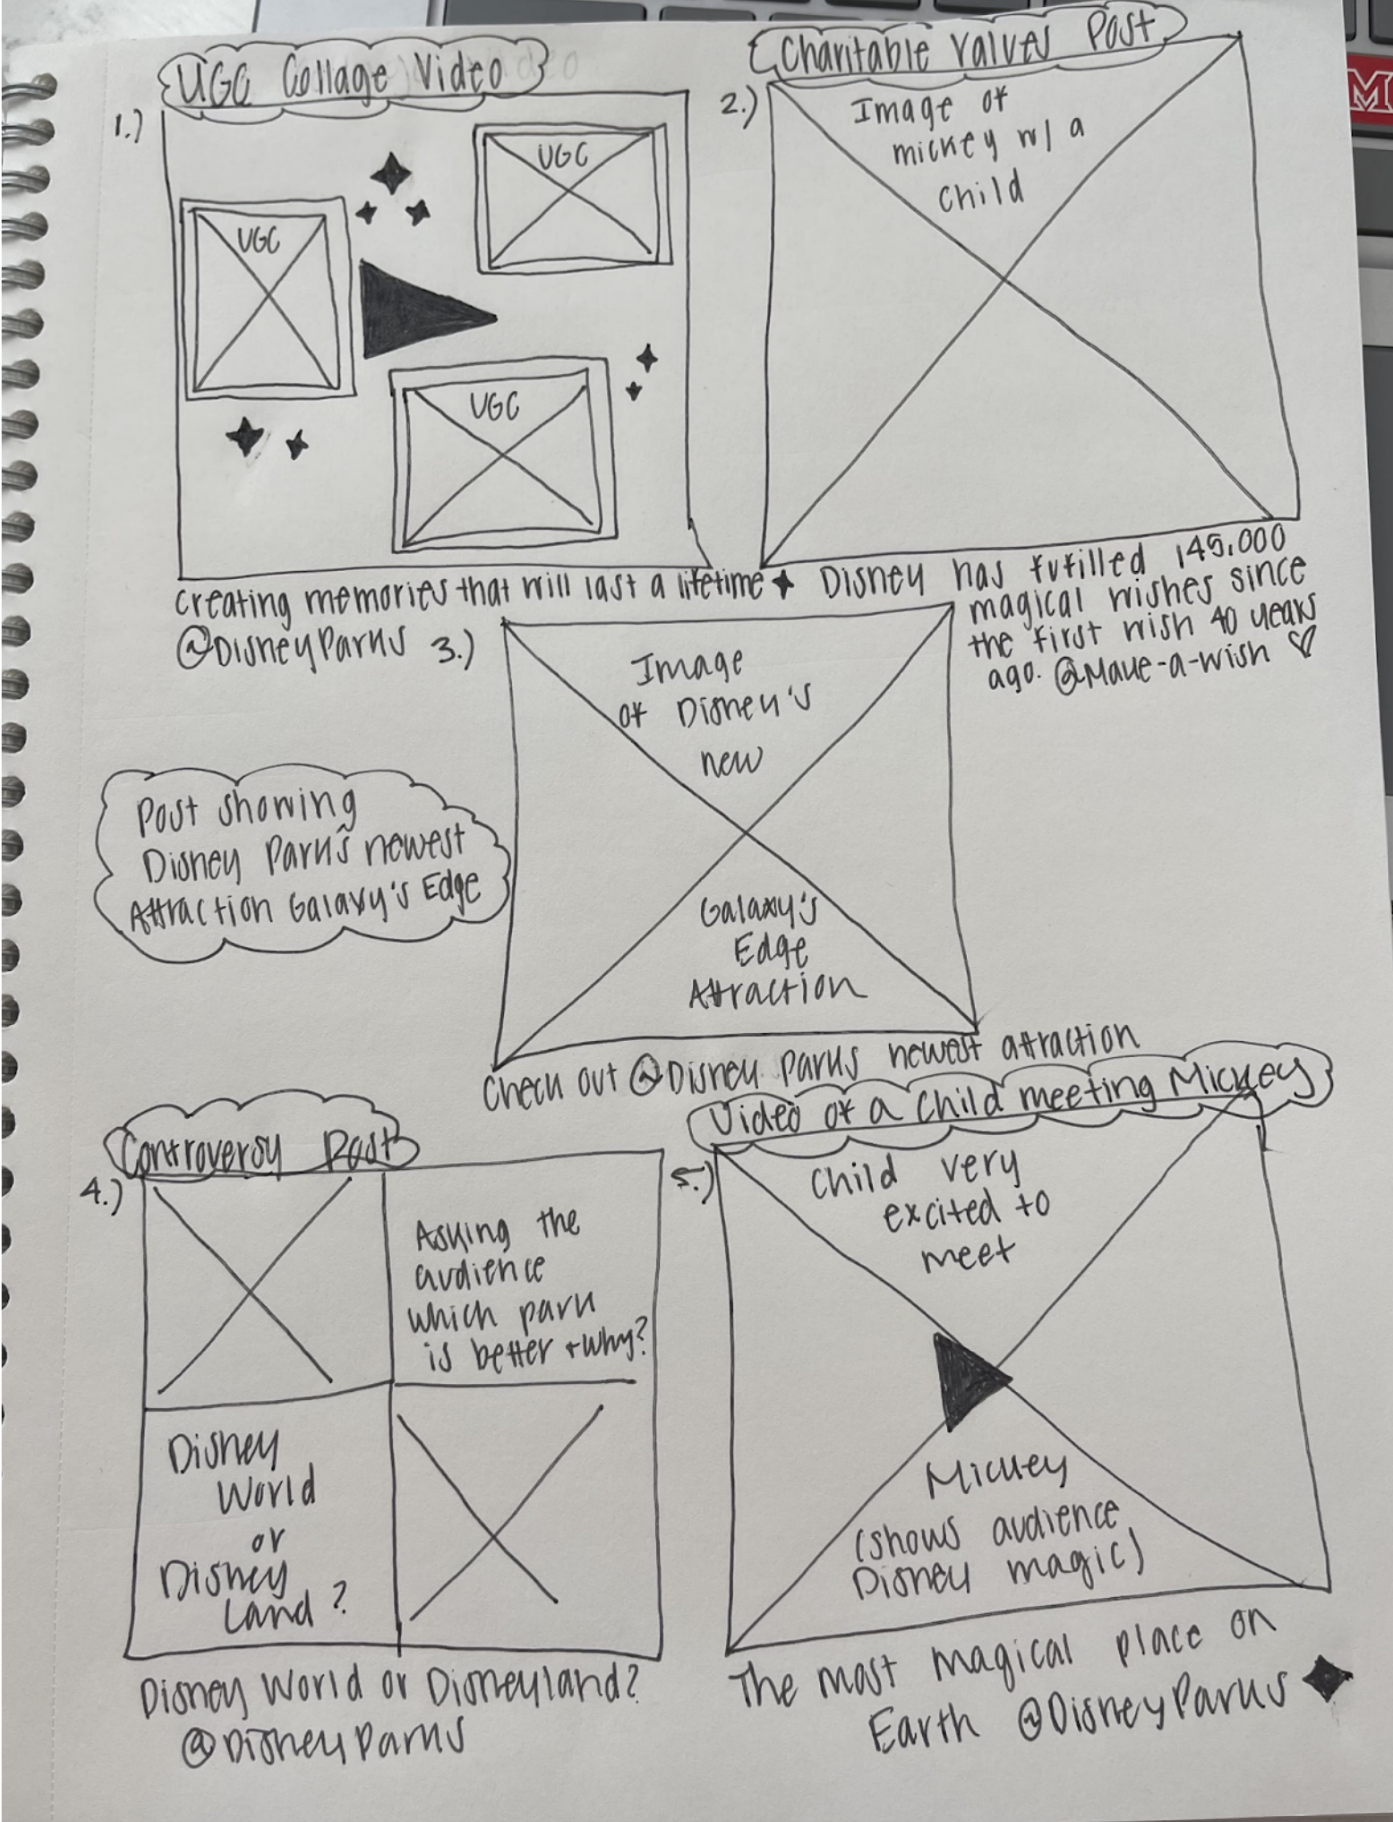 UGC Collage Video
1.)
UGC
UGC
UGC
Creating memories that will last a lifetime
@DisneyParks
Charitable Values Post
2.)
Image of
mickey w/ a
child
Disney has fufilled 145,000
magical wishes since
the first wish 40 years
ago. @Make-a-wish ♡
3.)
Image
of Disney's
new
Galaxy's
Edge
Attraction
Post showing
Disney Park's newest
Attraction Galaxy's Edge
Check out @Disney Parks newest attraction
Controversy Post
4.)
Asking the
audience
which park
is better + why?
Disney
World
or
Disney
Land?
Disney World or Disneyland?
@DisneyParks
Video of a child meeting Mickey
5.)
Child very
excited to
meet
Mickey
(shows audience
Disney magic)
The most magical place on
Earth @DisneyParks